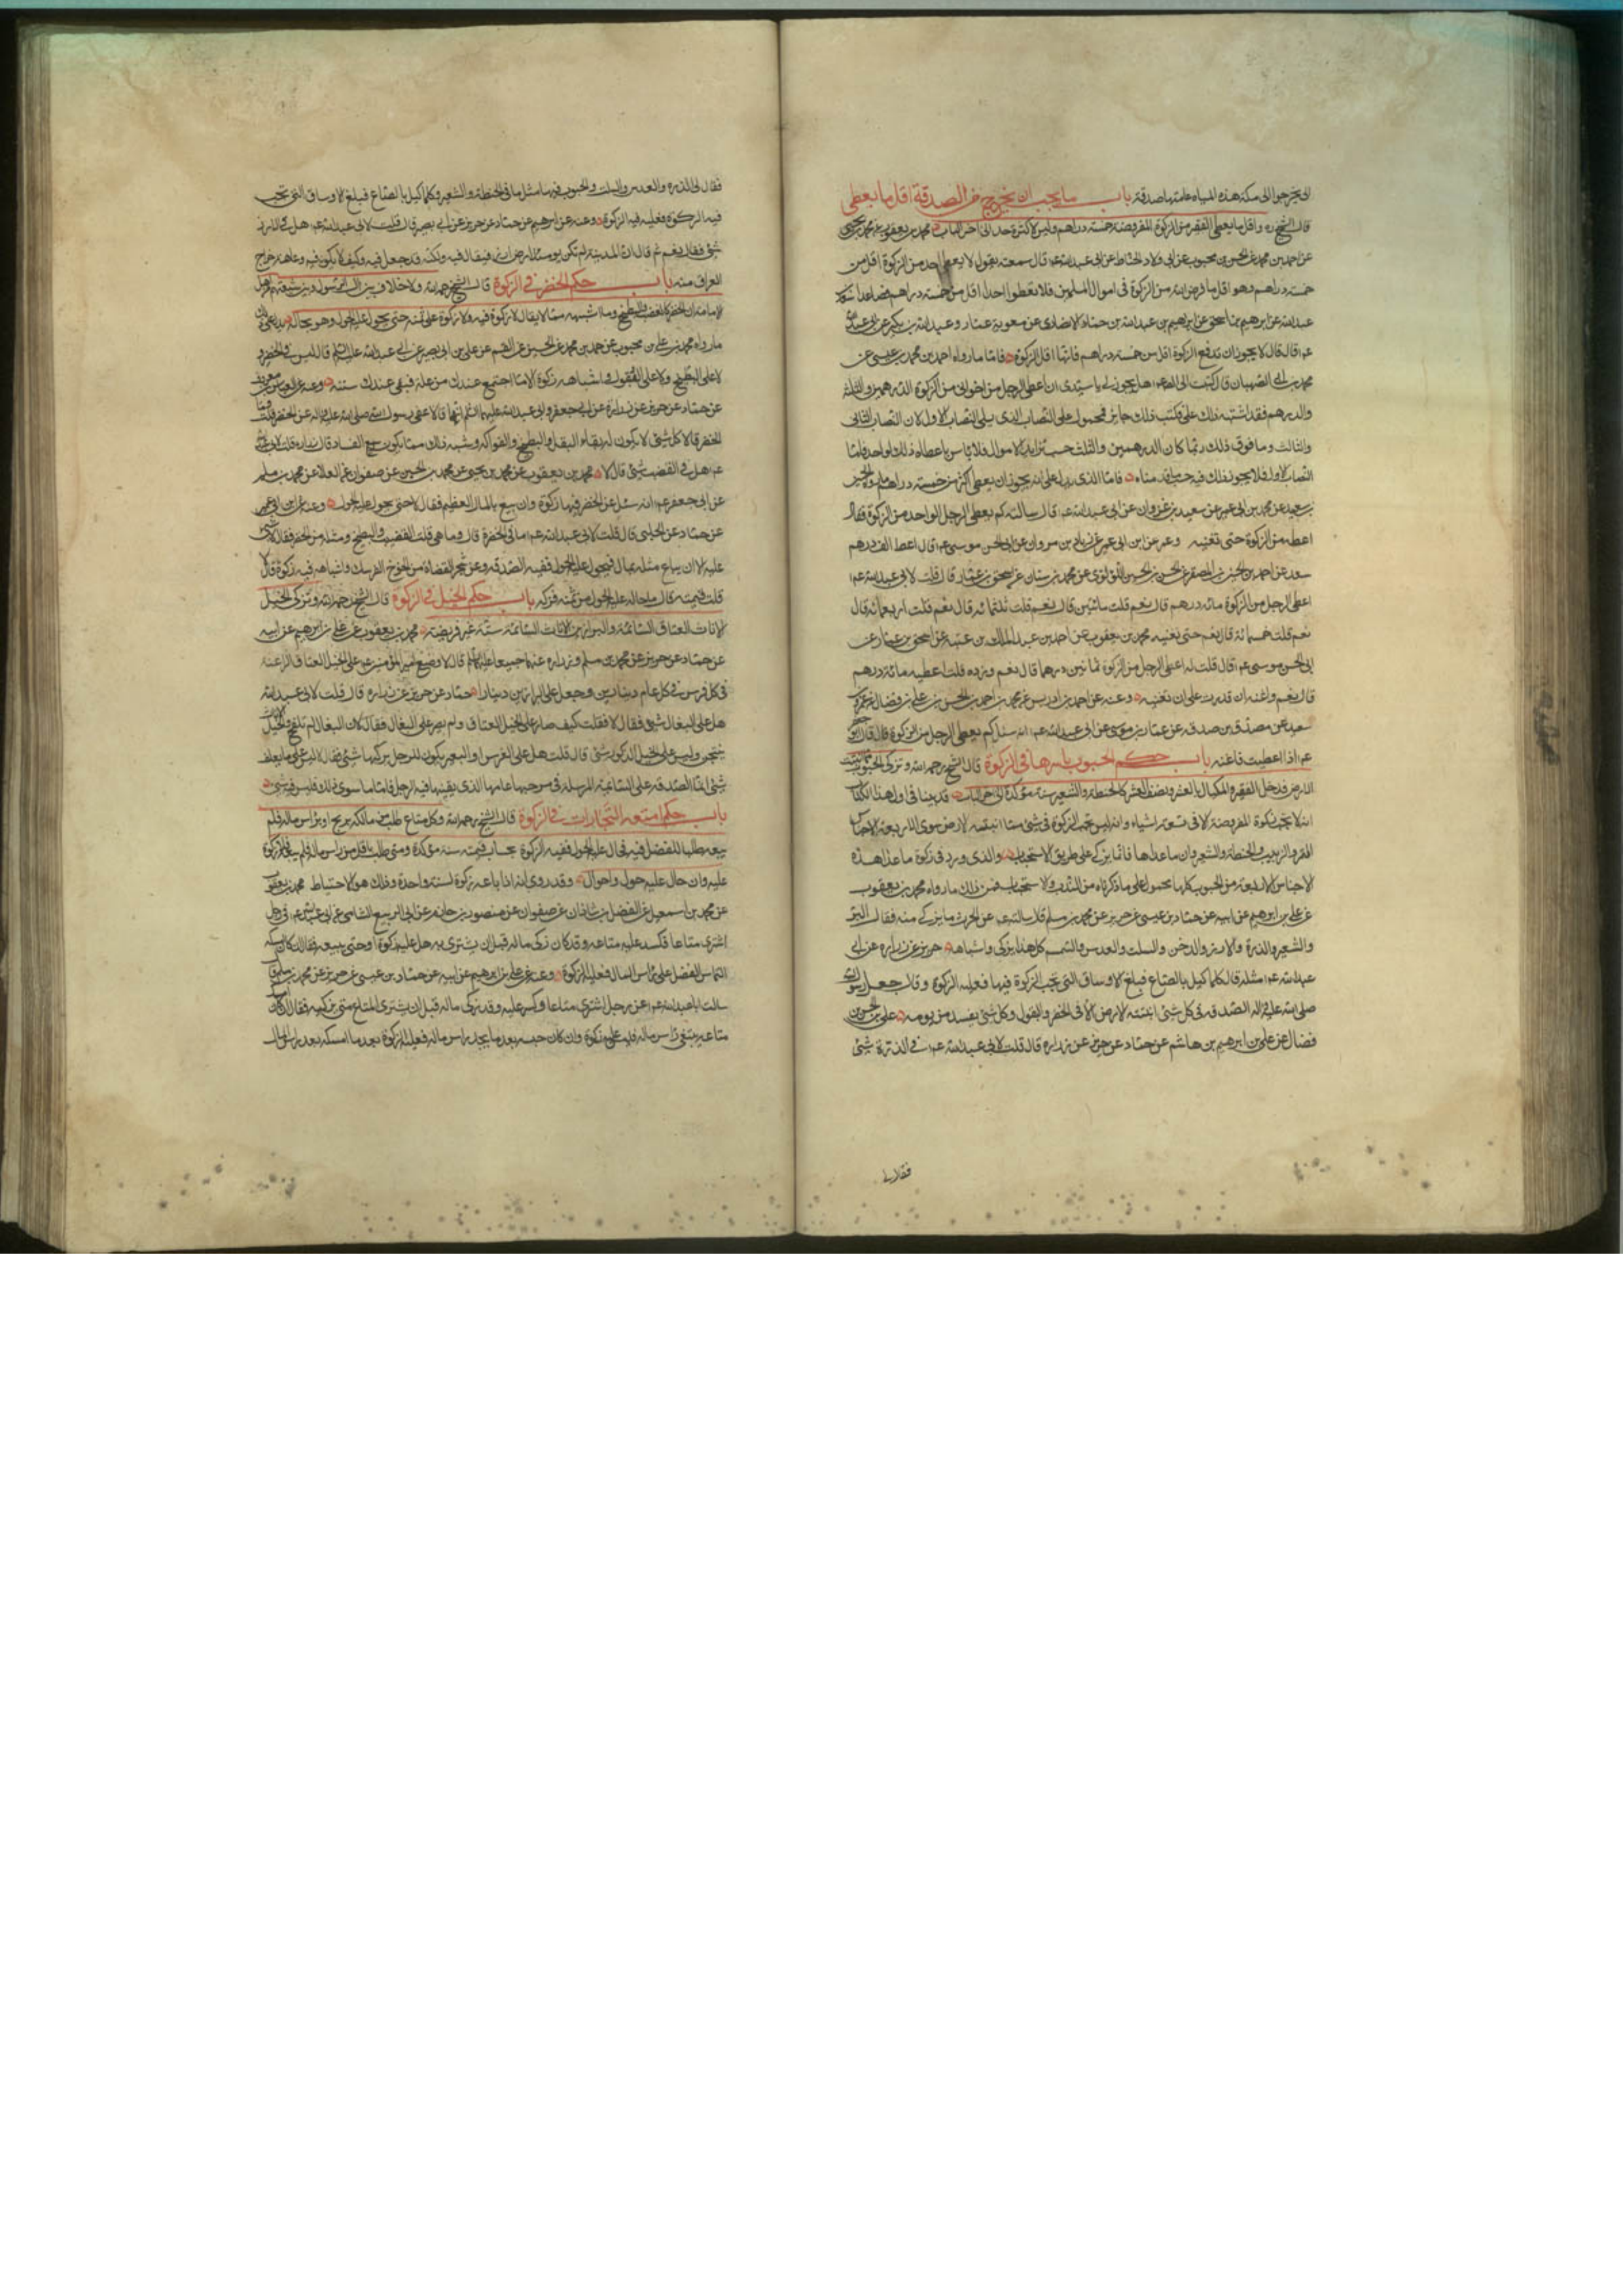 ان يخرجوا الى مكة هذه المياه عامتها صدقة باب ما يجب ان يخرج من الصدقة واقل ما يعطى
قال الشيخ ره واقل ما يعطى الفقير من الزكوة المفروضة خمسة دراهم وليس لاكثره حد الى اخر الباب محمد بن يعقوب عن محمد بن يحيى
عن احمد بن محمد عن الحسن بن محبوب عن ابى ولاد الحناط عن ابى عبد الله ع قال سمعته يقول لا يعطى احد من الزكوة اقل من
خمسة دراهم وهو اقل ما فرض الله من الزكوة فى اموال المسلمين فلا تعطوا احدا اقل من خمسة دراهم فصاعدا سعد بن
عبد الله عن ابرهيم بن اسحق عن ابرهيم بن عبد الله بن حماد الانصارى عن معوية بن عمار وعبد الله بن بكير عن ابى عبد الله
ع قال قال لا يجوز ان تدفع الزكوة اقل من خمسة دراهم فانها اقل الزكوة فاما ما رواه احمد بن محمد بن عيسى عن
محمد بن ابى الصهبان قال كتبت الى الصادق ع هل يجوز لى يا سيدى ان اعطى الرجل من اخوانى من الزكوة الدرهمين والثلثة
والدرهم فقد اشتبه ذلك على فكتب ذلك جايز فمحمول على النصاب الذى يلى النصاب الاول لان النصاب الثانى
والثالث وما فوق ذلك ربما كان الدرهمين والثلث حسب تزايد الاموال فلا باس باعطاء ذلك لواحد فاما
النصاب الاول فلا يجوز ذلك فيه حسب ما قدمناه فاما الذى يدل على انه يجوز ان يعطى اكثر من خمسة دراهم ما رواه الحسين
بن سعيد عن محمد بن ابى عمير عن سعيد بن غزوان عن ابى عبد الله ع قال سالته كم يعطى الرجل الواحد من الزكوة فقال
اعطه من الزكوة حتى تغنيه وعنه عن ابن ابى عمير عن زياد بن مروان عن ابى الحسن موسى ع قال اعط الف درهم
سعد عن احمد بن الحسين بن الصقر عن الحسن بن الحسين اللؤلؤى عن محمد بن سنان عن اسحق بن عمار قال قلت لابى عبد الله ع
اعطى الرجل من الزكوة مائه درهم قال نعم قلت مائتين قال نعم قلت ثلثمائه قال نعم قلت اربعمائه قال
نعم قلت خمسمائة قال نعم حتى تغنيه محمد بن يعقوب عن احمد بن عبد الملك بن عتبة عن اسحق بن عمار عن
ابى الحسن موسى ع قال قلت له اعطى الرجل من الزكوة ثمانين درهما قال نعم وزده قلت اعطيه مائة درهم
قال نعم واغنه ان قدرت على ان تغنيه وعنه عن احمد بن ادريس عن محمد بن احمد عن الحسن بن على بن فضال عن عمرو بن
سعيد عن مصدق بن صدقه عن عمار بن موسى عن ابى عبد الله ع انه سئل كم يعطى الرجل من الزكوة قال قال ابو جعفر
ع اذا اعطيت فاغنه باب حكم الحبوب باسرها فى الزكوة قال الشيخ رحمه الله وتزكى الحبوب مما تنبت
الارض فدخل القفيز والمكيال بالعشر ونصف العشر كالحنطة والشعير سنة مؤكدة الى اخر الباب قد بينا فى اول هذا الكتاب
انه لا تجب زكوة المفروضة الا فى تسعة اشياء وانه ليس تجب الزكوة فى شئ مما انبتته الارض سوى الاربعة الاجناس
التمر والزبيب والحنطة والشعير وان ما عداها فانما يزكى على طريق الاستحباب والذى ورد فى زكوة ما عدا هذه
الاجناس الاربعة من الحبوب كلها محمول على ما ذكرناه من الندب والاستحباب فمن ذلك ما رواه محمد بن يعقوب
عن على بن ابرهيم عن ابيه عن حماد بن عيسى عن حريز عن محمد بن مسلم قال سالته ع عن الحرث ما يزكى منه فقال البر
والشعير والذرة والارز والدخن والسلت والعدس والسمسم كل هذا يزكى واشباهه حريز عن زراره عن ابى
عبد الله ع مثله قال كلما كيل بالصاع فبلغ الاوساق التى تجب الزكوة فيها فعليه الزكوة وقال جعل رسول الله
صلى الله عليه واله الصدقه فى كل شئ انبتته الارض الا فى الخضر والبقول وكل شئ يفسد من يومه على بن الحسن بن
فضال عن على بن ابرهيم بن هاشم عن حماد عن حريز عن زراره قال قلت لابى عبد الله ع فى الذرة شئ
فقال لى
فقال لى الذره والعدس والسلت والحبوب فيها مثل ما فى الحنطة والشعير وكلما كيل بالصاع فبلغ الاوساق التى تجب
فيه الزكوة فعليه فيه الزكوة وعنه عن ابرهيم عن حماد عن حريز عن ابى بصير قال قلت لابى عبد الله ع هل فى الارز
شئ فقال نعم ثم قال ان المدينة لم تكن يومئذ ارض ارز فيقال فيه ولكنه قد جعل فيه وكيف لا يكون فيه وعامة خراج
العراق منه باب حكم الخضر فى الزكوة قال الشيخ رحمه الله ولا خلاف بين ال الرسول وبين شيعتهم من اهل
الامامة ان الخضر كالقضب والبطيخ وما اشبهه مما لا يقال لا زكوة فيه ولا زكوة على ثمنه حتى يحول عليه الحول وهو بحاله يدل على ذلك
ما رواه محمد بن على بن محبوب عن احمد بن محمد عن الحسين عن القسم عن على بن ابى بصير عن ابى عبد الله عليه السلم قال ليس فى الخضر و
لا على البطيخ ولا على البقول واشباهه زكوة الا ما اجتمع عندك من غلته فبقى عندك سنة وعنه عن
عن حماد عن حريز عن زرارة عن ابى جعفر وابى عبد الله عليهما السلم انهما قالا عفى رسول الله صلى الله عليه واله عن الخضر قلت وما
الخضر قالا كل شئ لا يكون له بقاء البقل والبطيخ والفواكه وشبه ذلك مما يكون سريع الفساد قال زراره قلت لابى عبد الله
ع هل فى القضب شئ قال لا محمد بن يعقوب عن محمد بن يحيى عن محمد بن الحسين عن صفوان عن العلا عن محمد بن مسلم
عن ابى جعفر ع انه سئل عن الخضر فيها زكوة وان بيع بالمال العظيم فقال لا حتى يحول عليه الحول وعنه عن ابن ابى عمير
عن حماد عن الحلبى قال قلت لابى عبد الله ع ما فى الخضرة قال وما هى قلت القضب والبطيخ ومثله من الخضر فقال لا شئ
عليه الا ان يباع مثله بمال فيحول عليه الحول ففيه الصدقه وعن شجر العضاه من الخوخ الفرسك واشباهه فيه زكوة قال لا
قلت فثمنه قال ما حال عليه الحول من ثمنه فزكه باب حكم الخيل فى الزكوة قال الشيخ رحمه الله وتزكى الخيل
الاناث العتاق السائمة والبراذين الاناث السائمة سنة غير فريضة محمد بن يعقوب عن على بن ابرهيم عن ابيه
عن حماد عن حريز عن محمد بن مسلم وزراره عنهما جميعا عليهما السلم قالا وضع امير المؤمنين ع على الخيل العتاق الراعية
فى كل فرس فى كل عام دينارين وجعل على البراذين دينارا حماد عن حريز عن زراره قال قلت لابى عبد الله
هل على البغال شئ فقال لا فقلت كيف صار على الخيل العتاق ولم يصر على البغال فقال لان البغال لم تلقح والخيل الاناث
ينتجن وليس على الخيل الذكور شئ قال قلت هل على الفرس او البعير يكون للرجل يركبها شئ فقال لا ليس على ما يعلف
شئ انما الصدقه على السائمة المرسلة فى مرجها عامها الذى يقتنيها فيه الرجل فاما ما سوى ذلك فليس فيه شئ
باب حكم امتعه التجارات فى الزكوة قال الشيخ رحمه الله وكل متاع طلب من مالكه بربح او براس ماله فلم
يبعه طلبا للفضل فيه فحال عليه الحول ففيه الزكوة بحساب قيمته سنة مؤكدة ومتى طلب باقل من راس ماله فلم يبعه فلا زكوة
عليه وان حال عليه حول واحوال وقد روى انه اذا باعه زكوة لسنة واحدة وذلك هو الاحتياط محمد بن يعقوب
عن محمد بن اسمعيل عن الفضل بن شاذان عن صفوان عن منصور بن حازم عن ابى الربيع الشامى عن ابى عبد الله ع فى رجل
اشترى متاعا فكسد عليه متاعه وقد كان زكى ماله قبل ان يشترى به هل عليه زكوة او حتى يبيعه فقال ان كان امسكه
التماس الفضل على راس المال فعليه الزكوة وعنه عن على بن ابرهيم عن ابيه عن حماد بن عيسى عن حريز عن محمد بن مسلم قال
سالت ابا عبد الله ع عن رجل اشترى متاعا وكسد عليه وقد زكى ماله قبل ان يشترى المتاع متى يزكيه فقال ان كان امسك
متاعه يبتغى راس ماله فليس عليه زكوة وان كان حبسه بعد ما يجد راس ماله فعليه الزكوة بعد ما امسكه بعد راس المال